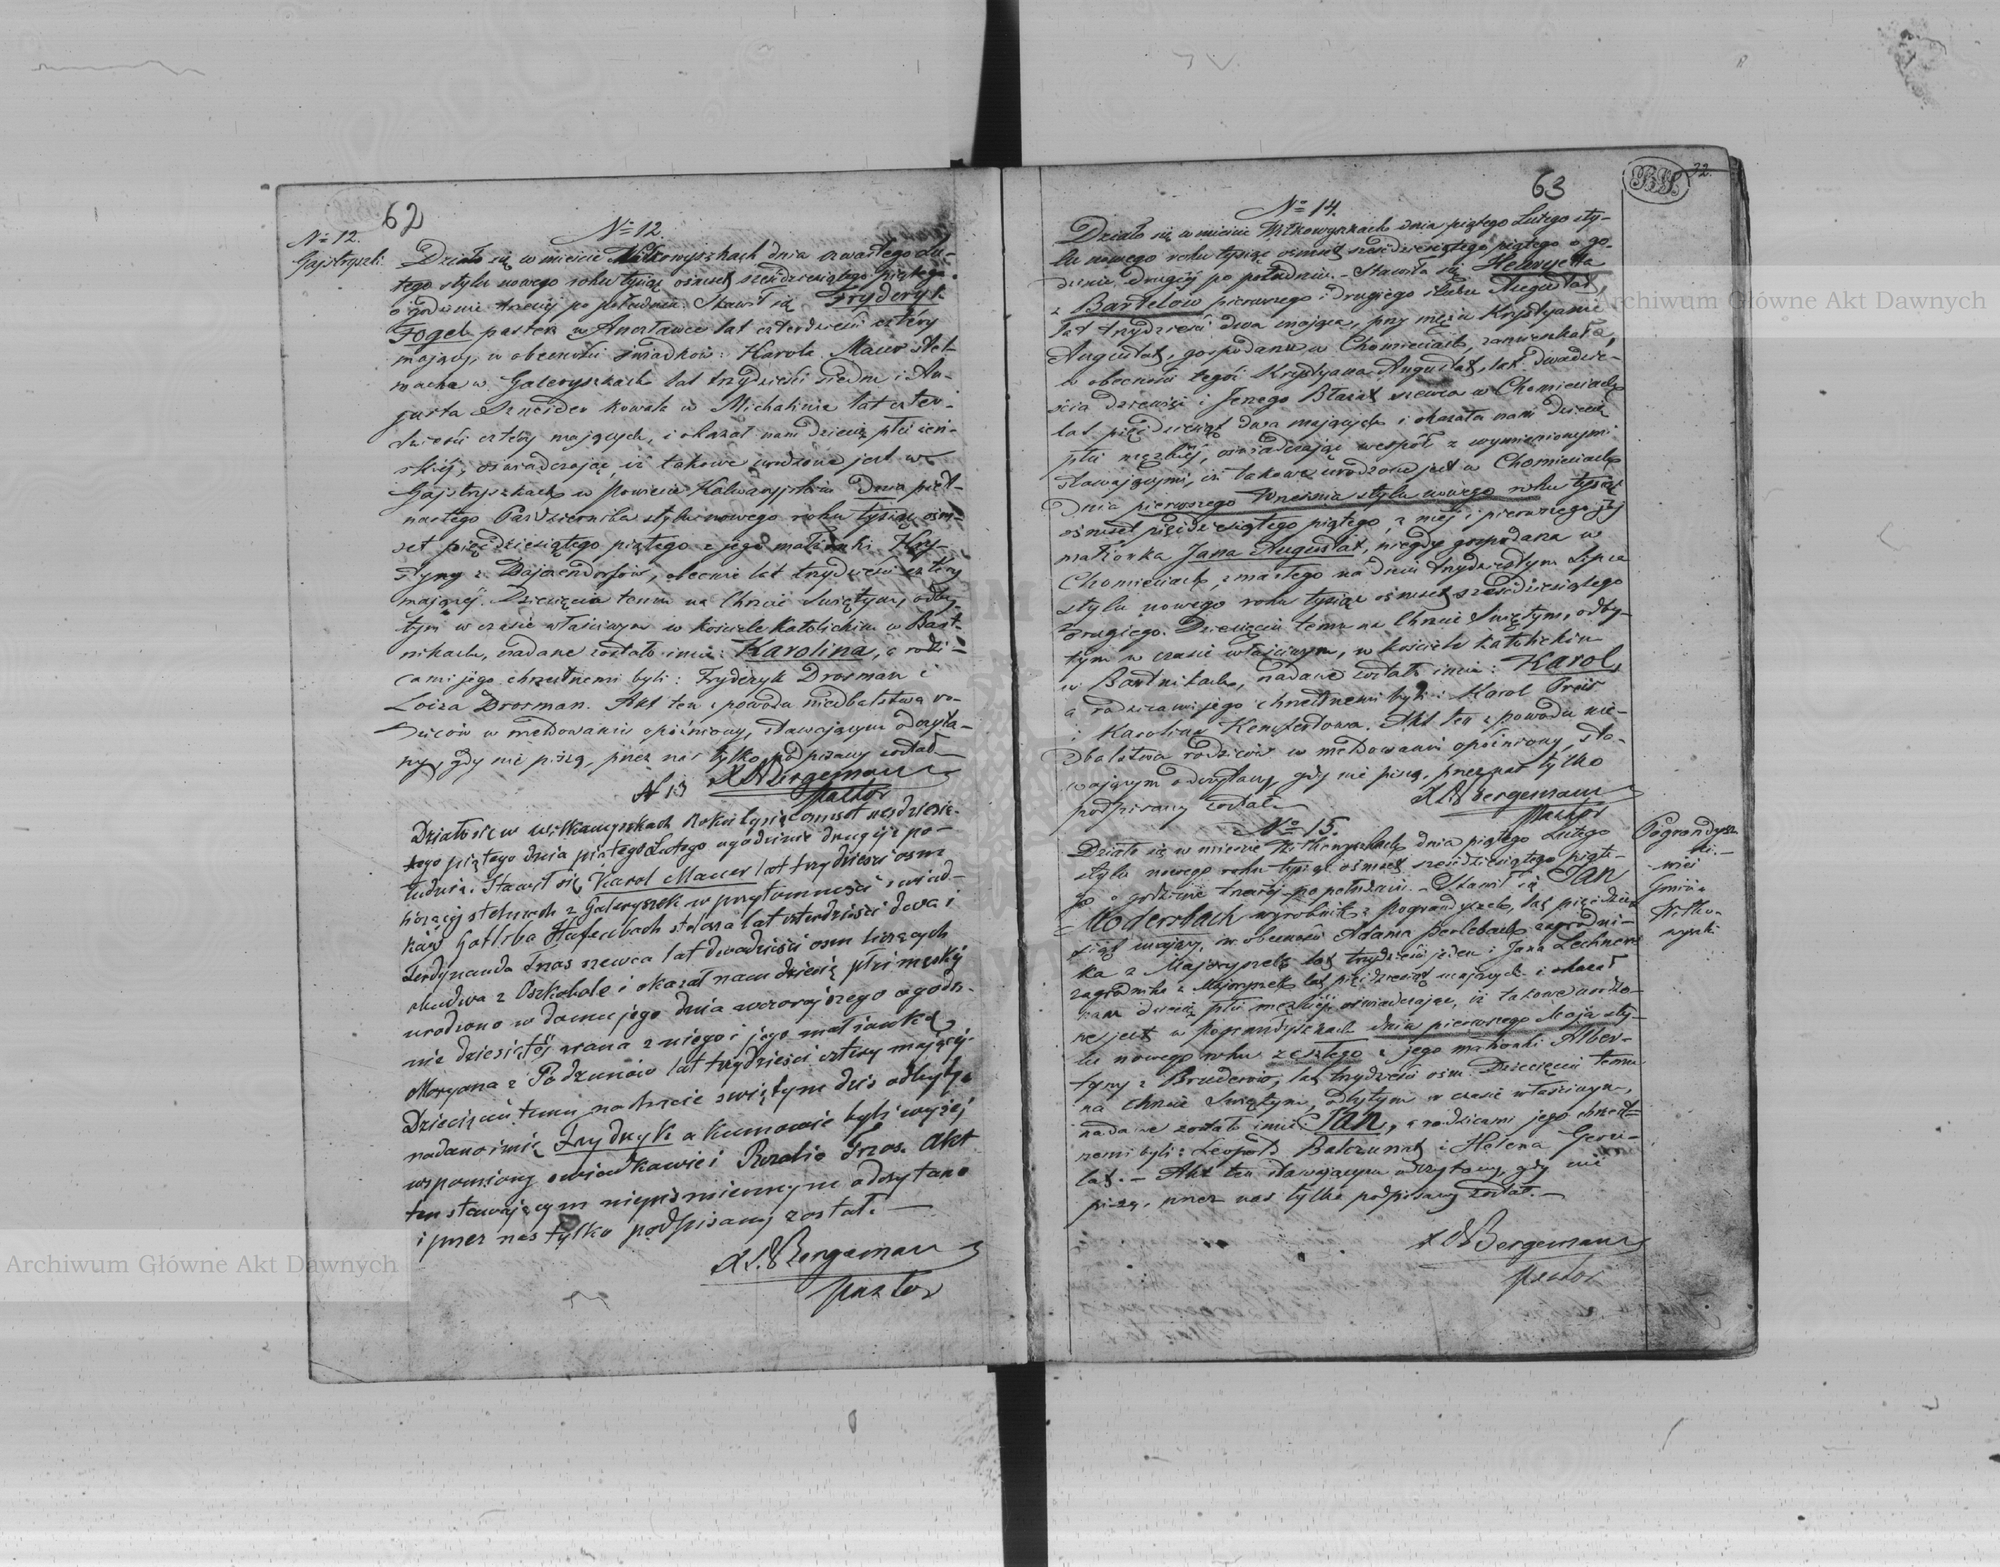 62
№ 12.
Gajstryszki
№ 12.
Działo się w mieście Wiłkowyszkach dnia czwartego Lu-
tego stylu nowego roku tysiąc ośmset sześćdziesiątego piątego
o godzinie trzeciej po południu. Stawił się Fryderyk
Fogel pasterz w lat czterdzieści cztéry
mający, w obecności świadków: Karola Maur stel-
macha w Galeryszkach lat trzydzieści siedm i Au-
gusta Szneider kowala w Michalinie lat czter-
dzieści cztéry mających, i okazał nam dziecię płci żeń-
skiéj, oświadczając, iż takowe urodzone jest w
Gajstryszkach w Powiecie Kalwaryjskim dnia pięt-
nastego Października stylu nowego roku tysiąc ośm-
set pięćdziesiątego piątego z jego małżonki Kry-
styny z obecnie lat trzydzieści cztéry
mającéj. Dziecięciu temu na Chrzcie Świętym, odby-
tym w czasie właściwym w kościele Katolickim w Bart-
nikach, nadane zostało imię: Karolina, a rodzi-
cami jego chrzestnemi byli: Fryderyk Drosman i
Loiza Drosman. Akt ten z powodu niedbalstwa ro-
dziców w meldowaniu opóźniony, stawającym odczyta-
ny, gdy nie piszą, przez nas tylko podpisany został
Bergemann
Pastor
№ 13
Działo się w Wiłkowyszkach Roku tysiąc ośmset sześćdziesią-
tego piątego dnia piątego Lutego o godzinie drugiej po po-
łudniu. Stawił się Karol Mauer lat trzydzieści osm
liczący stelmach z Galeryszek w przytomności świad-
ków Gotliba stolarza lat czterdzieści dwa i
Ferdynanda Tras szewca lat dwadzieścia osm liczących
obudwa z Oszkobole i okazał nam dziecię płci męskiej
urodzone w domu jego dnia wczorajszego o godzi-
nie dziesiątéj zrana z niego i jego małżonki
Maryana z lat trzydzieści cztery mającéj.
Dziecięciu temu na chrzcie świętym dziś odbytym
nadano imię Frydryk a kumowie byli wyżej
wspomniony świadkowie i Rozalia Tras. Akt
ten stawającym niepismiennym odczytano
i przez nas tylko podpisany został.
Bergemann
Pastor
63
32.
№ 14.
Działo się w mieście Wiłkowyszkach dnia piątego Lutego sty-
lu nowego roku tysiąc ośmset sześćdziesiątego piątego o go-
dzinie drugiéj po południu. Stawiła się Henryetta
z Bartelow pierwszego i drugiego ślubu Augustat,
lat trzydzieści dwa mająca, przy mężu Krystyanie
Augustat, gospodarzu w Chomiciach, zamieszkała,
w obecności tegoż Krystyana Augustat, lat dwadzie-
ścia dziewięć i Jerzego szewca w Chomiciach
lat pięćdziesiąt dwa mających i okazała nam dziecię
płci męzkiéj, oświadczając wespół z wymienionymi
stawającymi, iż takowe urodzone jest w Chomiciach
dnia pierwszego Września stylu nowego roku tysiąc
ośmset pięćdziesiątego piątego z niéj i pierwszego jéj
małżonka Jana Augustat, niegdy gospodarza w
Chomiciach, zmarłego na dniu trzydziestym Lipca
stylu nowego roku tysiąc ośmset sześćdziesiątego
drugiego. Dziecięciu temu na Chrzcie Świętym, odby-
tym w czasie właściwym, w kościele katolickim
w Bartnikach, nadane zostało imię: Karol,
a rodzicami jego chrzestnemi byli: Karol Preis
i Karolina. Akt ten z powodu nie-
dbalstwa rodziców w meldowaniu opóźniony, sta-
wającym odczytany, gdy nie piszą, przez nas tylko
podpisany został
Bergemann
Pastor
№ 15.
Pograndysz
ki.
wieś
Gmina
Wiłko-
wyszki
Działo się w mieście Wiłkowyszkach dnia piątego Lutego
stylu nowego roku tysiąc ośmset sześćdziesiątego piąte-
go o godzinie trzeciéj po południu. Stawił się Jan
Modersbach wyrobnik z Pograndyszek, lat pięćdzie-
siąt mający, w obecności Adama Berlebach zagrodni-
ka z Majoryszek lat trzydzieści jeden i Jana Lechner
zagrodnika z Majoryszek lat pięćdziesiąt mających i okazał
nam dziecię płci męzkiéj oświadczając, iż takowe urodzo-
ne jest w Pograndyszkach dnia pierwszego Maja sty-
lu nowego roku zeszłego z jego małżonki Alber-
tyny z Bruderów, lat trzydzieści ośm. Dziecięciu temu
na Chrzcie Świętym, odbytym w czasie właściwym,
nadane zostało imię Jan, a rodzicami jego chrzest-
nemi byli: Leopold i Helena
Akt ten stawającym odczytany, gdy nie
piszą, przez nas tylko podpisany został.
Bergemann
Pastor
Archiwum Główne Akt Dawnych
Archiwum Główne Akt Dawnych